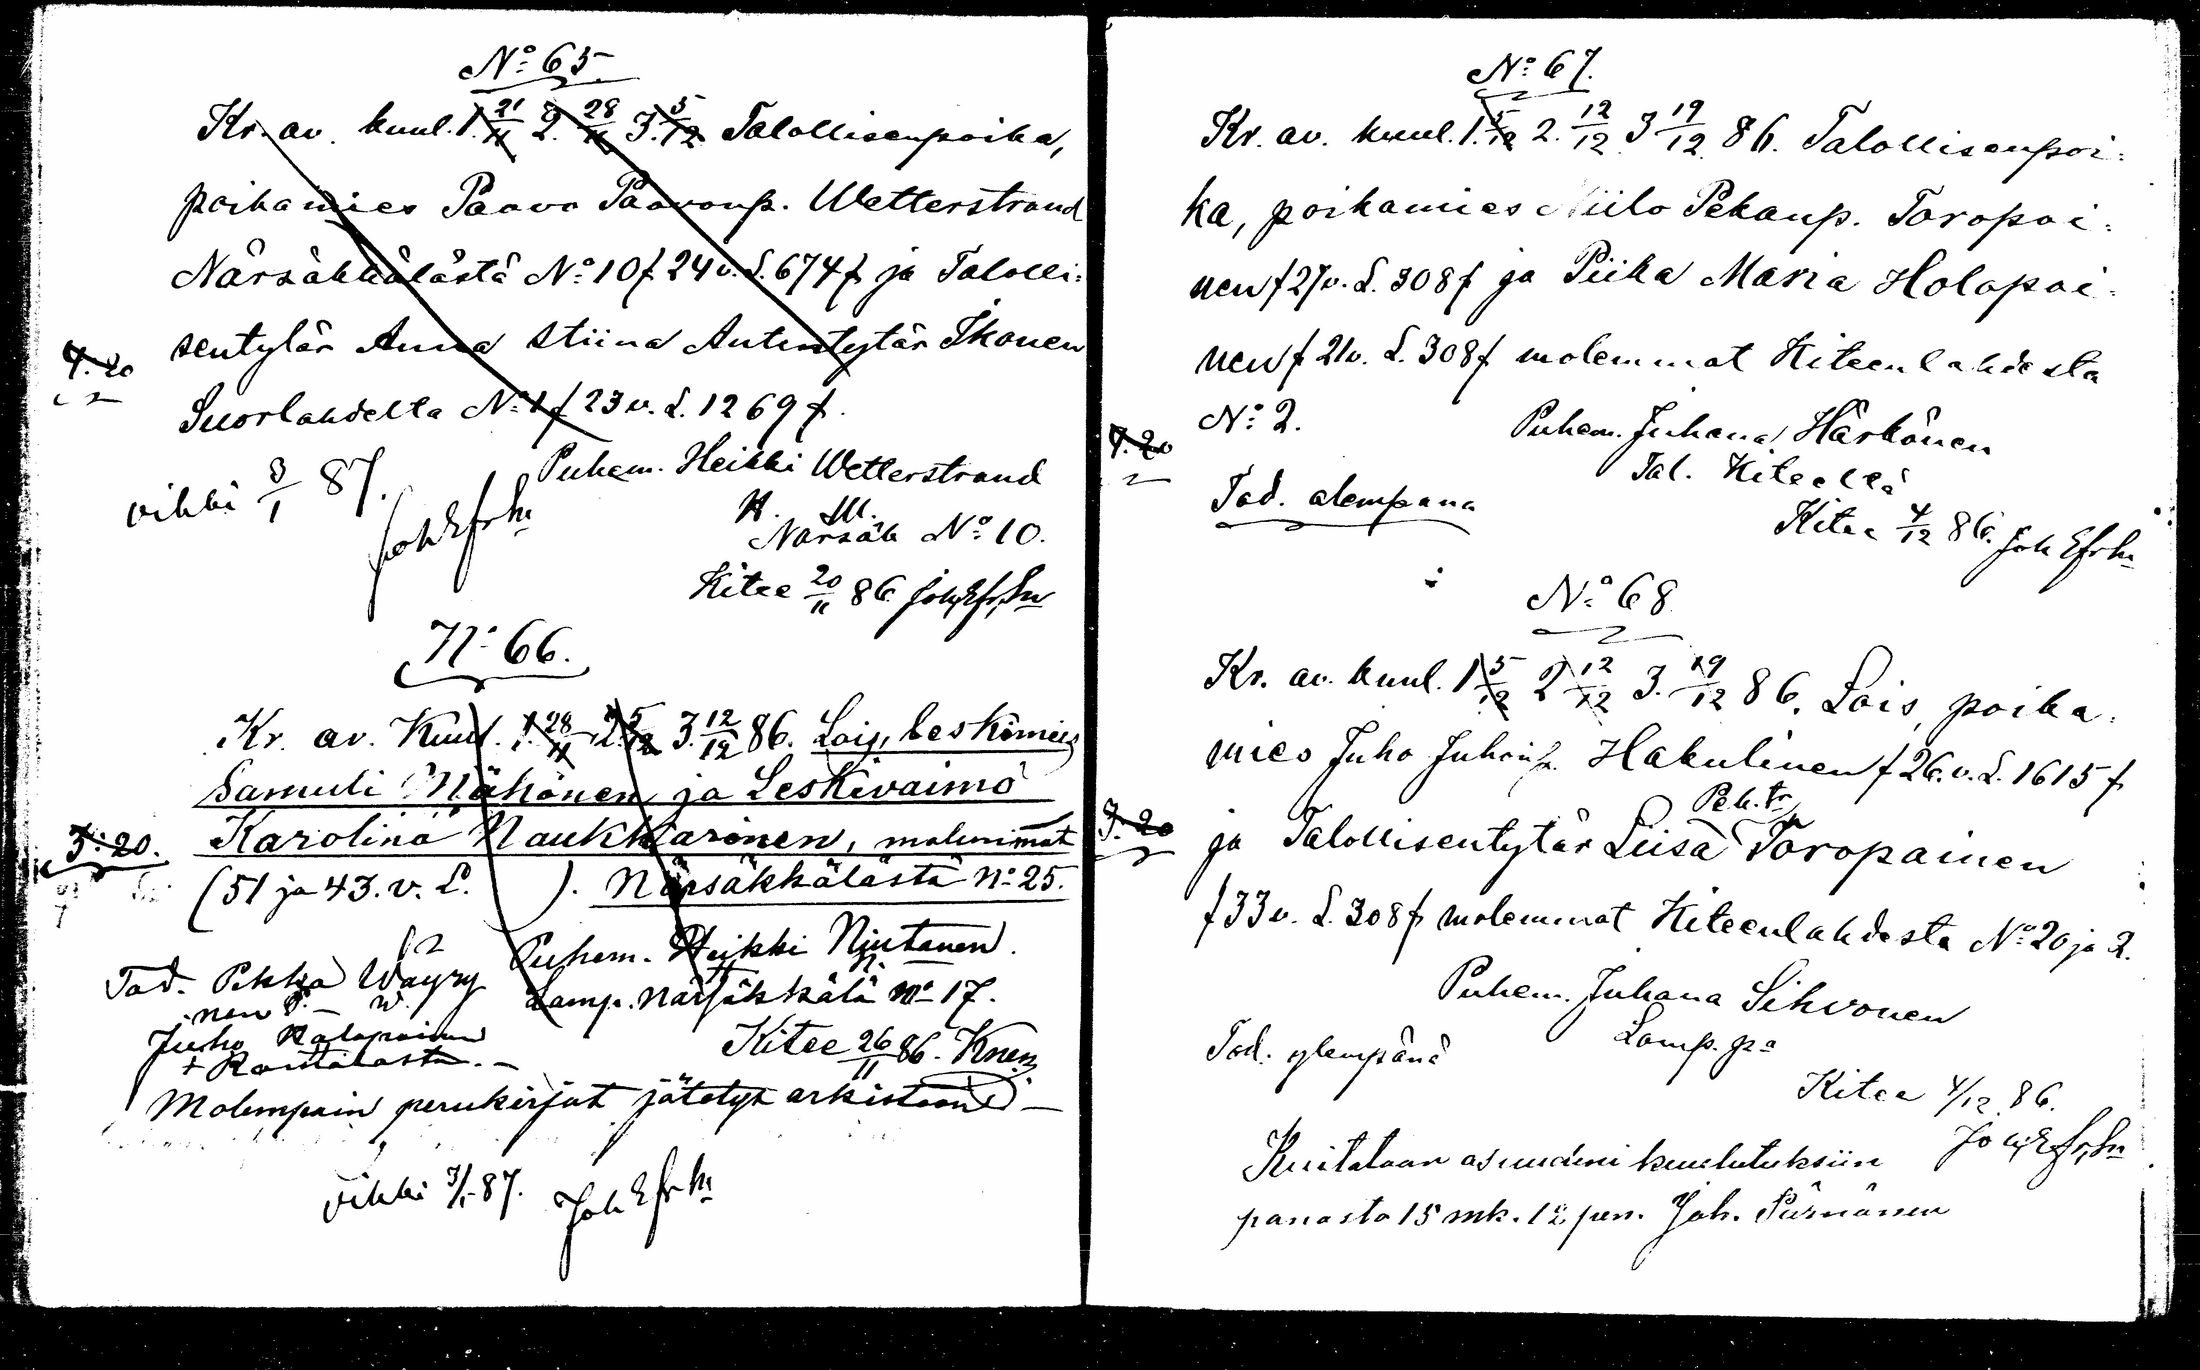 No: 65
Kr. av. kuul. 1. 21/11 2. 28/11 3. 5/12 Talollisenpoika,
poikamies Paavo Paavonp. Wetterstrand
Närsäkkälästä No: 10 f 24 v. L. 674 f ja Talolli:
sentytär Anna Stiina Antintytär Ikonen
4: 20
Suorlahdelta No: 1 f 23 v. L. 1269 f.
Puhem. Heikki Wetterstrand
vihki 3/1 87.
H. W.
Närsäk No: 10.
Kitee 20/11 86
No: 66.
Kr. av. Kuul. 1. 28/11 2. 5/12 3. 12/12 86. Lois, leskimies
Samuli Mähönen ja Leskivaimo
Karolina Naukkarinen, molemmat
3: 20.
(51 ja 43. v. L. ). Närsäkkälästä No: 25.
Puhem. Heikki Njutanen.
Tod. Pekka Wäyry
nen P. - W.
Lamp. Närsäkkälä No 17.
Juho
Kitee 26/11 86.
Molempain perukirjat jätetyt arkistoon
vihki 3/1 87.
No: 67.
Kr. av. kuul. 1. 5/12 2. 12/12 3 19/12 86. Talollisenpoi:
ka, poikamies Niilo Pekanp. Toropai:
nen f 27 v. L. 308 f ja Piika Maria Holopai:
nen f 21 v. L. 308 f molemmat Kiteenlahdesta
No: 2.
Puhem. Juhana Härkönen
4: 20
Tal. Kiteellä
Tod. alempana
Kitee 4/12 86.
No: 68
Kr. av. kuul. 1 5/12 2 12/12 3. 19/12 86. Lois, poika:
mies Juho Juhonp. Hakulinen f 26. v. L. 1615 f
Pek. tr
3: 20
ja Talollisentytär Liisa Toropainen
f 33 v. L. 308 f molemmat Kiteenlahdesta No: 20 ja 2.
Puhem. Juhana Sihvonen
Lamp.
Tod. ylempänä
Kitee 4/12 86.
Kuitataan kuulutuksiin
panosta 15 mk. 12 pen. Joh. Pärnänen